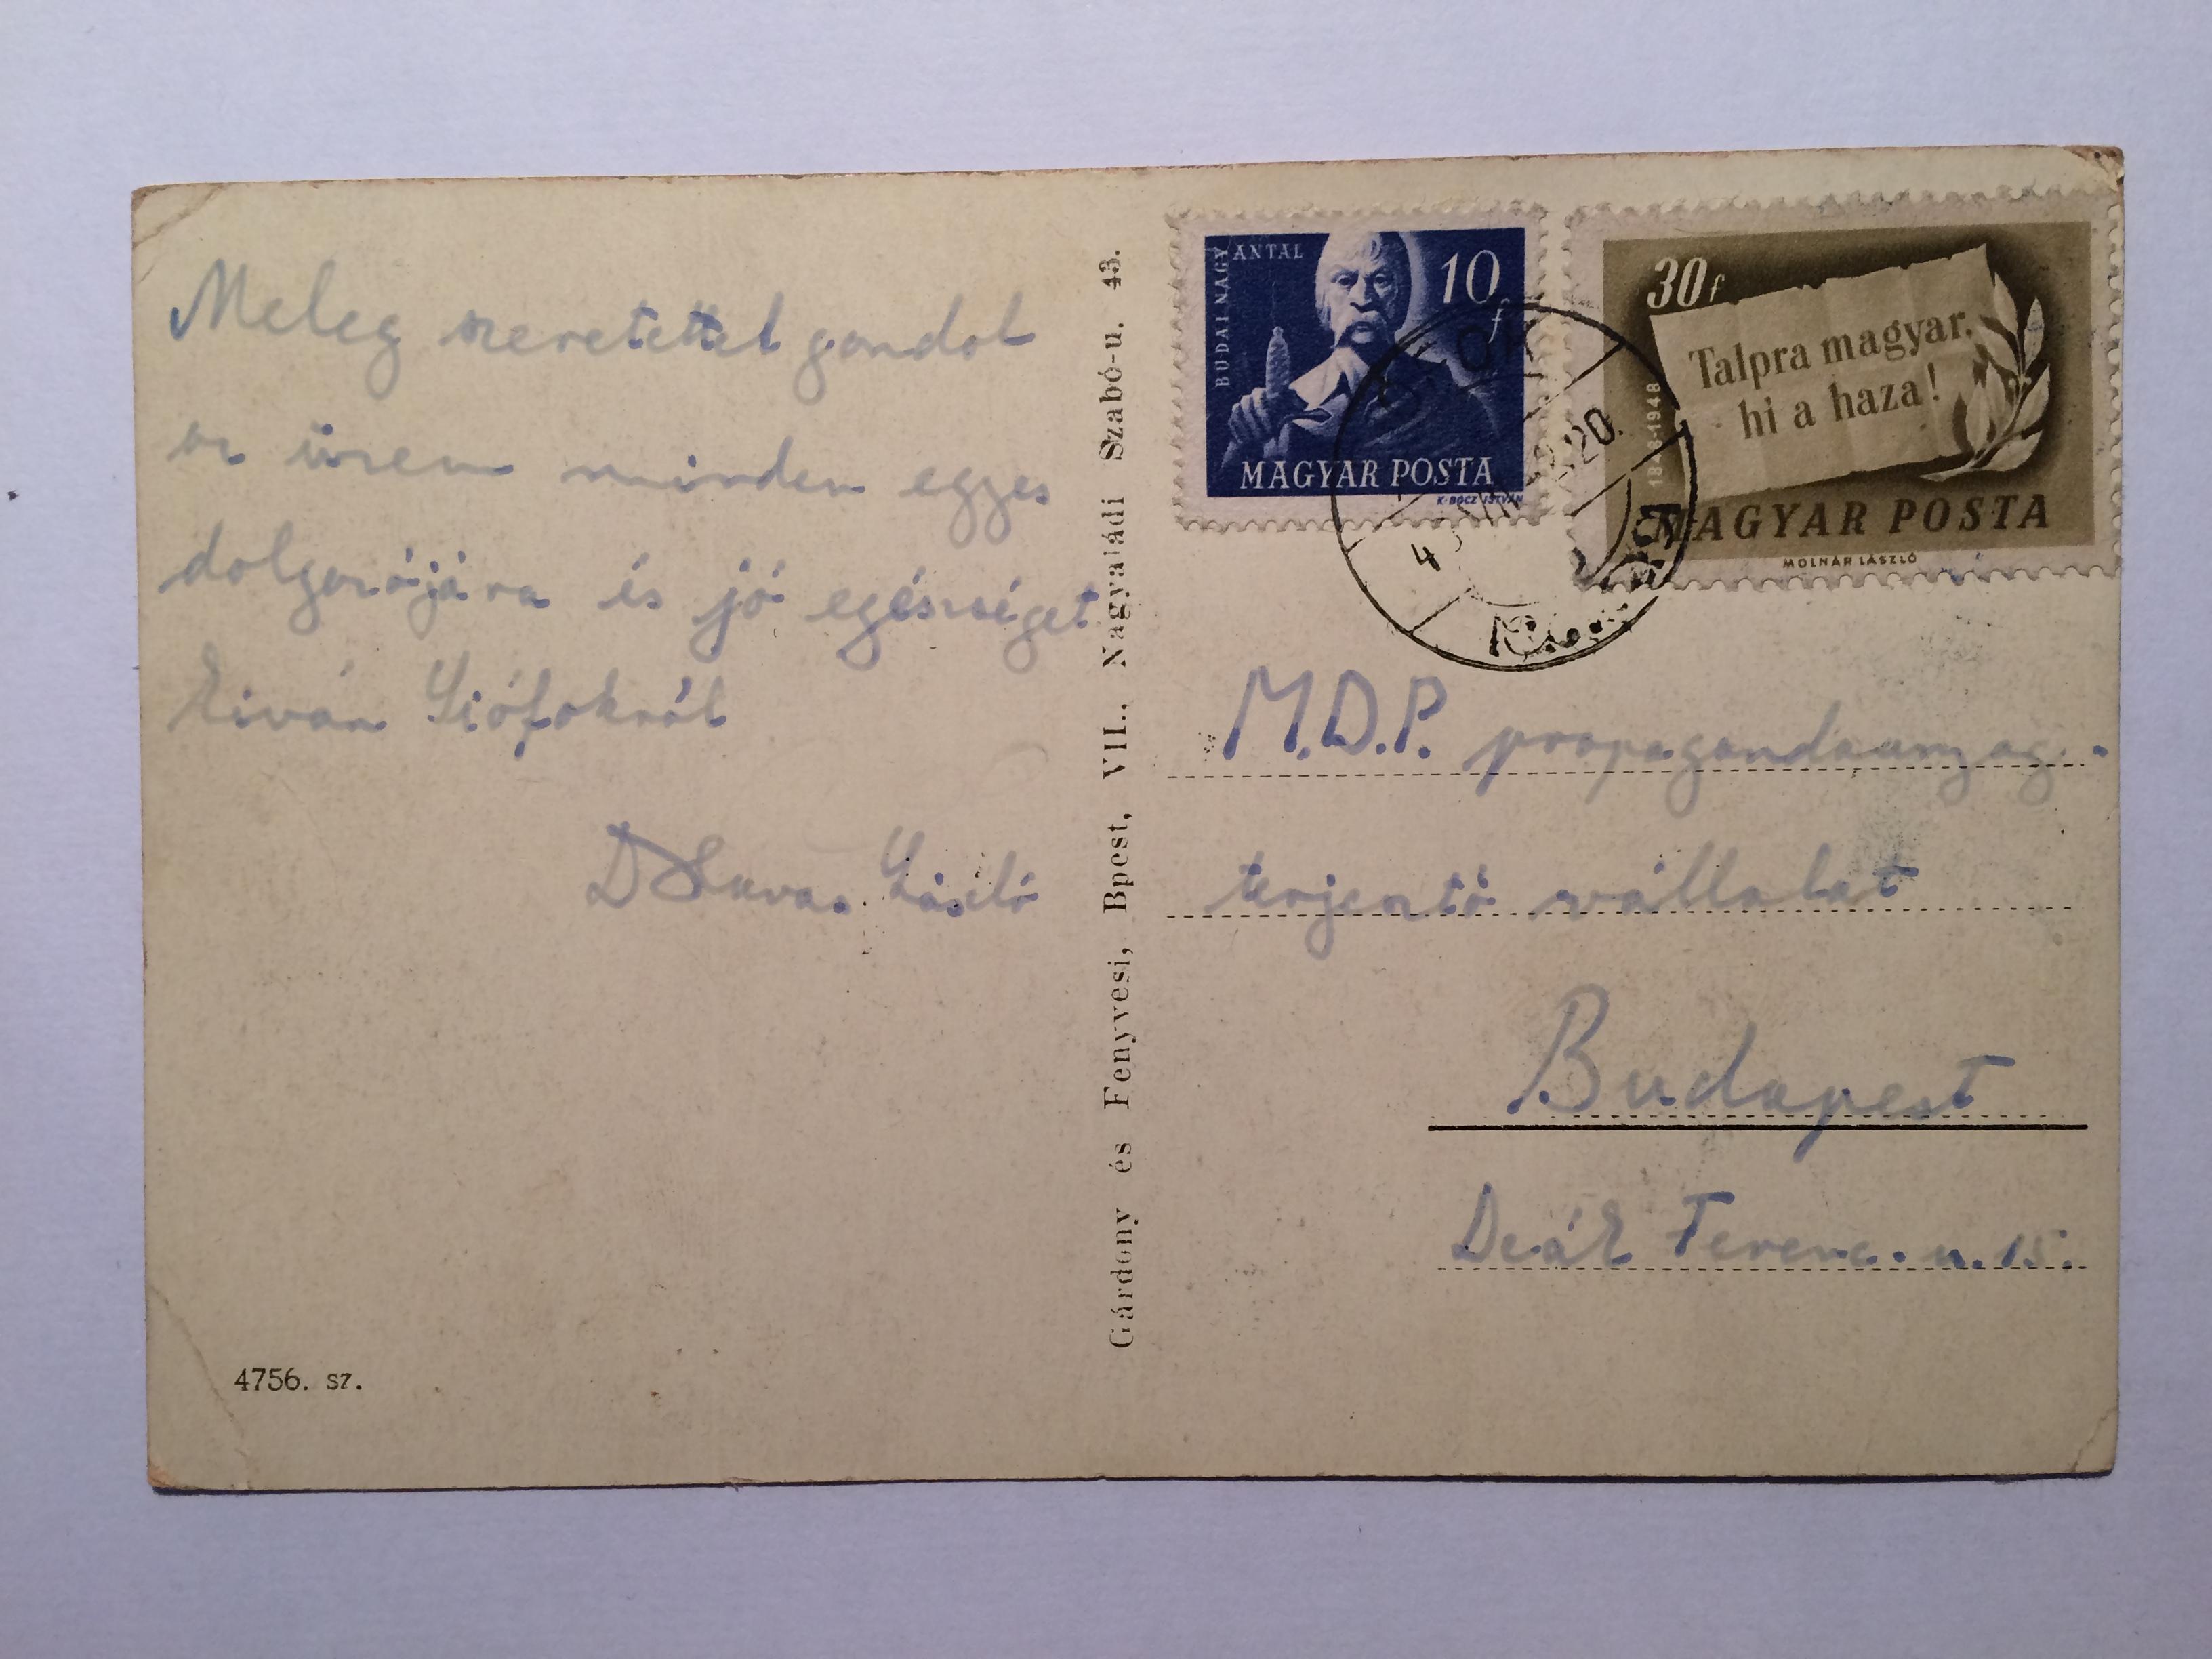 Meleg szeretettel gondol
az üzem minden egyes
dolgozójára és jó egészséget
kíván Siófokról
László
4756. sz.
Gárdony és Fenyvesi, Bpest, VII., Nagyatádi Szabó-u. 43.
BUDAI NAGY ANTAL
10 f
MAGYAR POSTA
K. BOCZ ISTVÁN
30 f
Talpra magyar,
hi a haza!
1848-1948
MAGYAR POSTA
MOLNÁR LÁSZLÓ
20.
4
M.D.P. propagandaanyag-
terjesztő vállalat
Budapest
Deák Ferenc. u. 15.